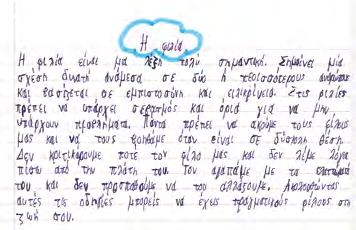 Η φιλία
Η φιλία είναι μια λέξη πολύ σημαντική. Σημαίνει μία
σχέση δυνατή ανάμεσα σε δύο ή περισσότερους ανθρώπους
και βασίζεται σε εμπιστοσύνη και ειλικρίνεια. Στις φιλίες
πρέπει να υπάρχει σεβασμός και όρια για να μην
υπάρχουν προβλήματα. Πάντα πρέπει να ακούμε τους φίλους
μας και να τους βοηθάμε όταν είναι σε δύσκολη θέση.
Δεν κριτικάρουμε ποτέ τον φίλο μας και δεν λέμε λόγια
πίσω από την πλάτη του. Τον αγαπάμε με τα ελαττώματά
του και δεν προσπαθούμε να τον αλλάξουμε. Ακολουθώντας
αυτές τις οδηγίες μπορείς να έχεις πραγματικούς φίλους στη
ζωή σου.